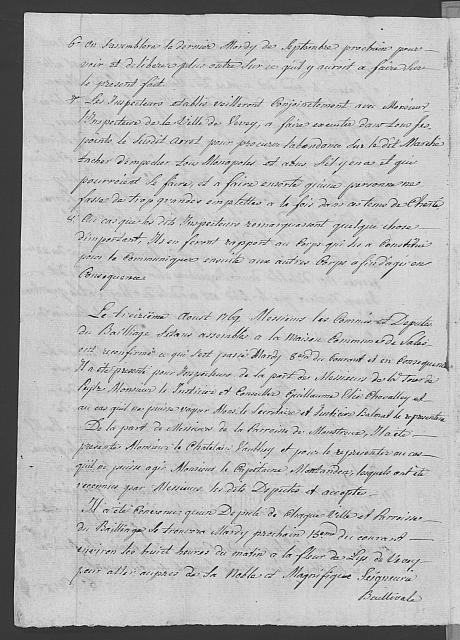 6. On s'assemblera le dernier Mardy de Septembre prochain pour
voir et deliberer plus outre sur ce qu'il y auroit a faire sur
le present fait.
7. Les Inspecteurs etablis veilleront Conjointement avec Monsieur
l'Inspecteur de la Ville de Vevey, a faire executer dans tous ses
points le Susdit Arrêt pour procurer l'abondance sur le dit Marché
tacher d'empecher tous Monopoles et abus s'il y en a et qui
pourroient se faire, et a faire ensorte qu'une personne ne
fasse de trop grandes emplettes a la fois dans ce tems de Cherté
8. Au cas que les dits Inspecteurs remarquassent quelque chose
d'important, Ils en feront rapport au Corps qui les a Constitué
pour le Communiquer ensuite aux autres Corps afin d'agir en
Consequence
Le treizieme Aoust 1769 Messieurs les Commis et Deputés
du Bailliage Estans assemblés a la Maison Commune de Sales
ont reconfirmé ce qui s'est passé Mardy 8eme du Courant et en Consequence
Il a été presenté pour Inspecteurs de la part de Messieurs de la Tour de
Peylz Monsieur le Justicier et Conseiller Guillaume Elie Chevalley et
au cas qu'il ne puisse vaquer Mons. le Secretaire et Justicier Balmat le representera
De la part de Messieurs de la Parroisse de Montreux, Il a été
presenté Monsieur le Chatelain Vautier et pour le representer au cas
qu'il ne puisse agir Monsieur le Capitaine Montandon, lesquels ont été
reconnus par Messieurs les dits Deputés et acceptés.
Il a été Convenu qu'un Deputé de Chaque Ville et Parroisse
du Bailliage se trouvera Mardy prochain 15eme du courant
environ les huit heures du matin a la fleur de Lys de Vevey
pour aller aupres de Sa Noble et Magnifique Seigneurie
Baillivale